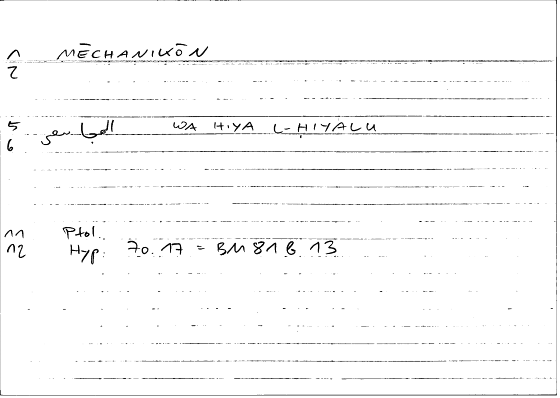 1 MĒCHANIKŌN
2
5 WA HIYA L-ḤIYALU
6
11 Ptol.
12 Hyp. 70.17 = BM 81 B 13